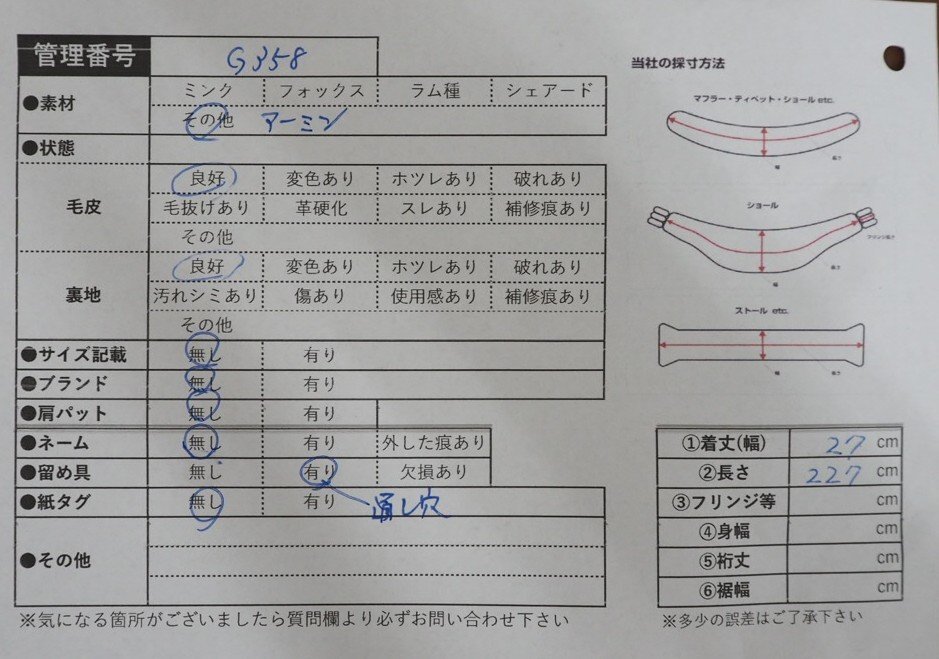 管理番号 G358
●素材 ミンク フォックス ラム種 シェアード
その他 アーミン
●状態
毛皮 良好 変色あり ホツレあり 破れあり
毛抜けあり 革硬化 スレあり 補修痕あり
その他
裏地 良好 変色あり ホツレあり 破れあり
汚れシミあり 傷あり 使用感あり 補修痕あり
その他
●サイズ記載 無し 有り
●ブランド 無し 有り
●肩パット 無し 有り
●ネーム 無し 有り 外した痕あり
●留め具 無し 有り 欠損あり
●紙タグ 無し 有り 通し穴
●その他
※気になる箇所がございましたら質問欄より必ずお問い合わせ下さい
当社の採寸方法
マフラー・ティペット・ショール etc.
長さ
幅
ショール
フリンジ長さ
長さ
幅
ストール etc.
幅
長さ
①着丈(幅) 27 cm
②長さ 227 cm
③フリンジ等 cm
④身幅 cm
⑤裄丈 cm
⑥裾幅 cm
※多少の誤差はご了承下さい